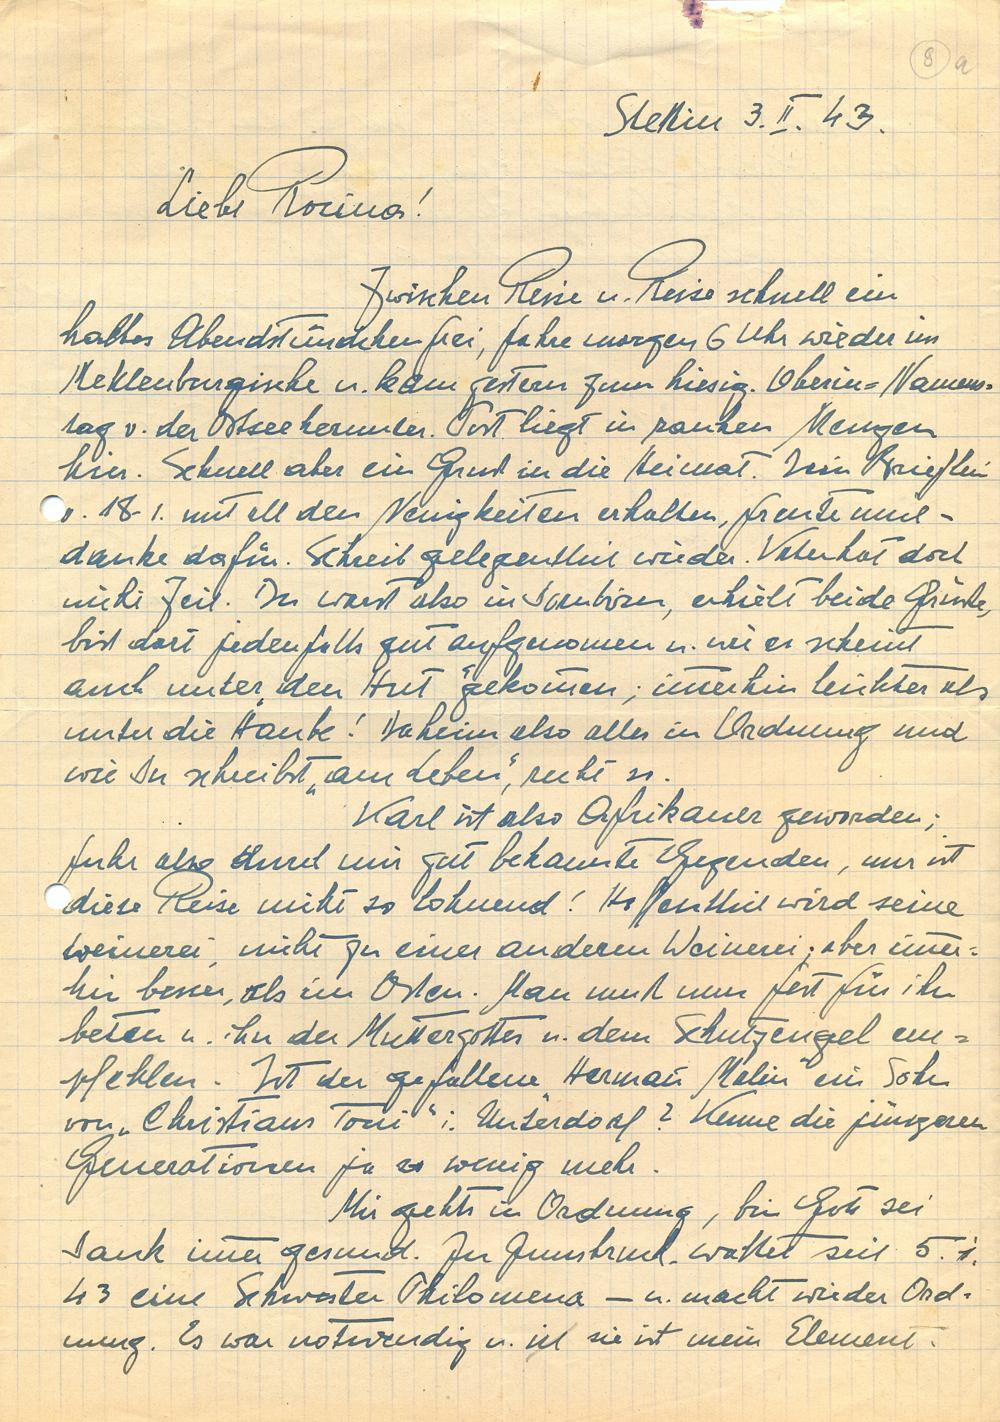 8 a
Stettin 3. II. 43.
Liebe Rosina!
Zwischen Reise u. Reise schnell ein
halbes Abendstündchen frei, fahre morgen 6 Uhr wieder ins
Meklenburgische u. kam gestern zum hiesig. Oberin=Namens-
tag v. der Ostsee herunter. Post liegt in rauhen Mengen
hier. Schnell aber ein Gruß in die Heimat. Dein Brieflein
v. 18. 1. mit all den Neuigkeiten erhalten, freute mich –
danke dafür. Schreib gelegentlich wieder. Vater hat doch
nicht Zeit. Du warst also in Dornbirn, erhielt beide Grüße,
bist dort jedenfalls gut aufgenomen u. wie es scheint
auch unter „den Hut“ gekom̄en; im̄erhin leichter als
unter die Haube! Daheim also alles in Ordnung und
wie Du schreibst „am Leben“, recht so.
Karl ist also Afrikaner geworden;
fuhr also durch mir gut bekannte Gegenden, nur ist
diese Reise nicht so lohnend! Hoffentlich wird seine
weinerei, nicht zu einer anderen Weinerei; aber im̄er=
hin besser, als im Osten. Man muß nun fest für ihn
beten u. ihn der Muttergottes u. dem Schutzengel em=
pfehlen. Ist der gefallene Herman̄ Malin ein Sohn
von „Christians Toni“ i. Unterdorf? Kenne die jüngeren
Generationen ja so wenig mehr.
Mir gehts in Ordnung, bin Gott sei
Dank im̄er gesund. In Innsbruck waltet seit 5. 1.
43 eine Schwester Philomena – u. macht wieder Ord=
nung. Es war notwendig u. ist sie ist mein Element.